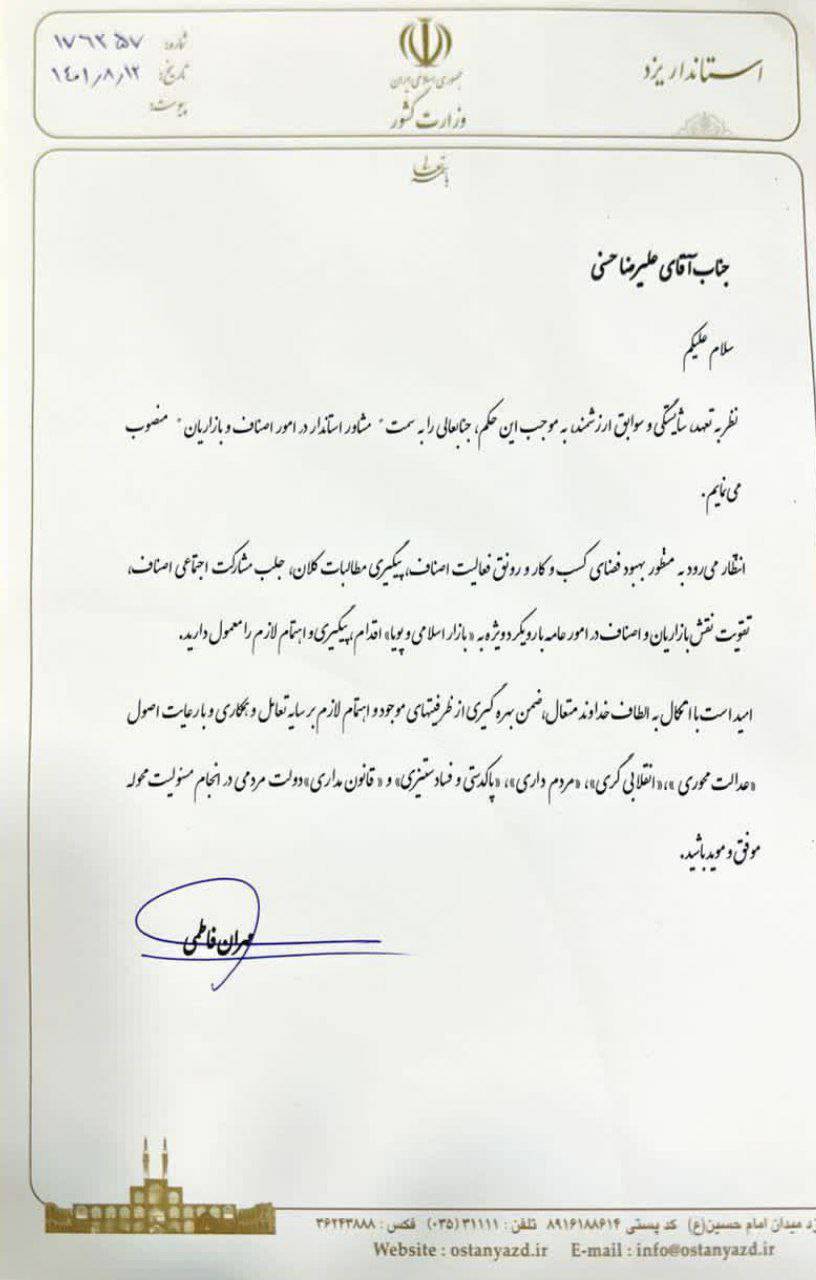 استاندار یزد
جمهوری اسلامی ایران
وزارت کشور
شماره: ۱۷۶۲۵۷
تاریخ: ۱۴۰۱/۸/۱۲
پیوست:
باسمه تعالی
جناب آقای علیرضا حسنی
سلام علیکم
نظر به تعهد، شایستگی و سوابق ارزشمند، به موجب این حکم، جنابعالی را به سمت " مشاور استاندار در امور اصناف و بازاریان " منصوب
می نمایم.
انتظار می‌رود به منظور بهبود فضای کسب و کار و رونق فعالیت اصناف، پیگیری مطالبات کلان، جلب مشارکت اجتماعی اصناف،
تقویت نقش بازاریان و اصناف در امور عامه با رویکرد ویژه به «بازار اسلامی و پویا» اقدام، پیگیری و اهتمام لازم را معمول دارید.
امید است با اتکال به الطاف خداوند متعال، ضمن بهره گیری از ظرفیتهای موجود و اهتمام لازم بر سایه تعامل و همکاری و با رعایت اصول
«عدالت محوری »، «انقلابی گری»، «مردم داری»، «پاکدستی و فساد ستیزی» و « قانون مداری» دولت مردمی در انجام مسئولیت محوله
موفق و موید باشید.
مهران فاطمی
میدان امام حسین(ع) کد پستی ۸۹۱۶۱۸۸۶۱۴ تلفن : ۳۱۱۱۱ (۰۳۵) فکس : ۳۶۲۴۳۸۸۸
Website : ostanyazd.ir E-mail : info@ostanyazd.ir